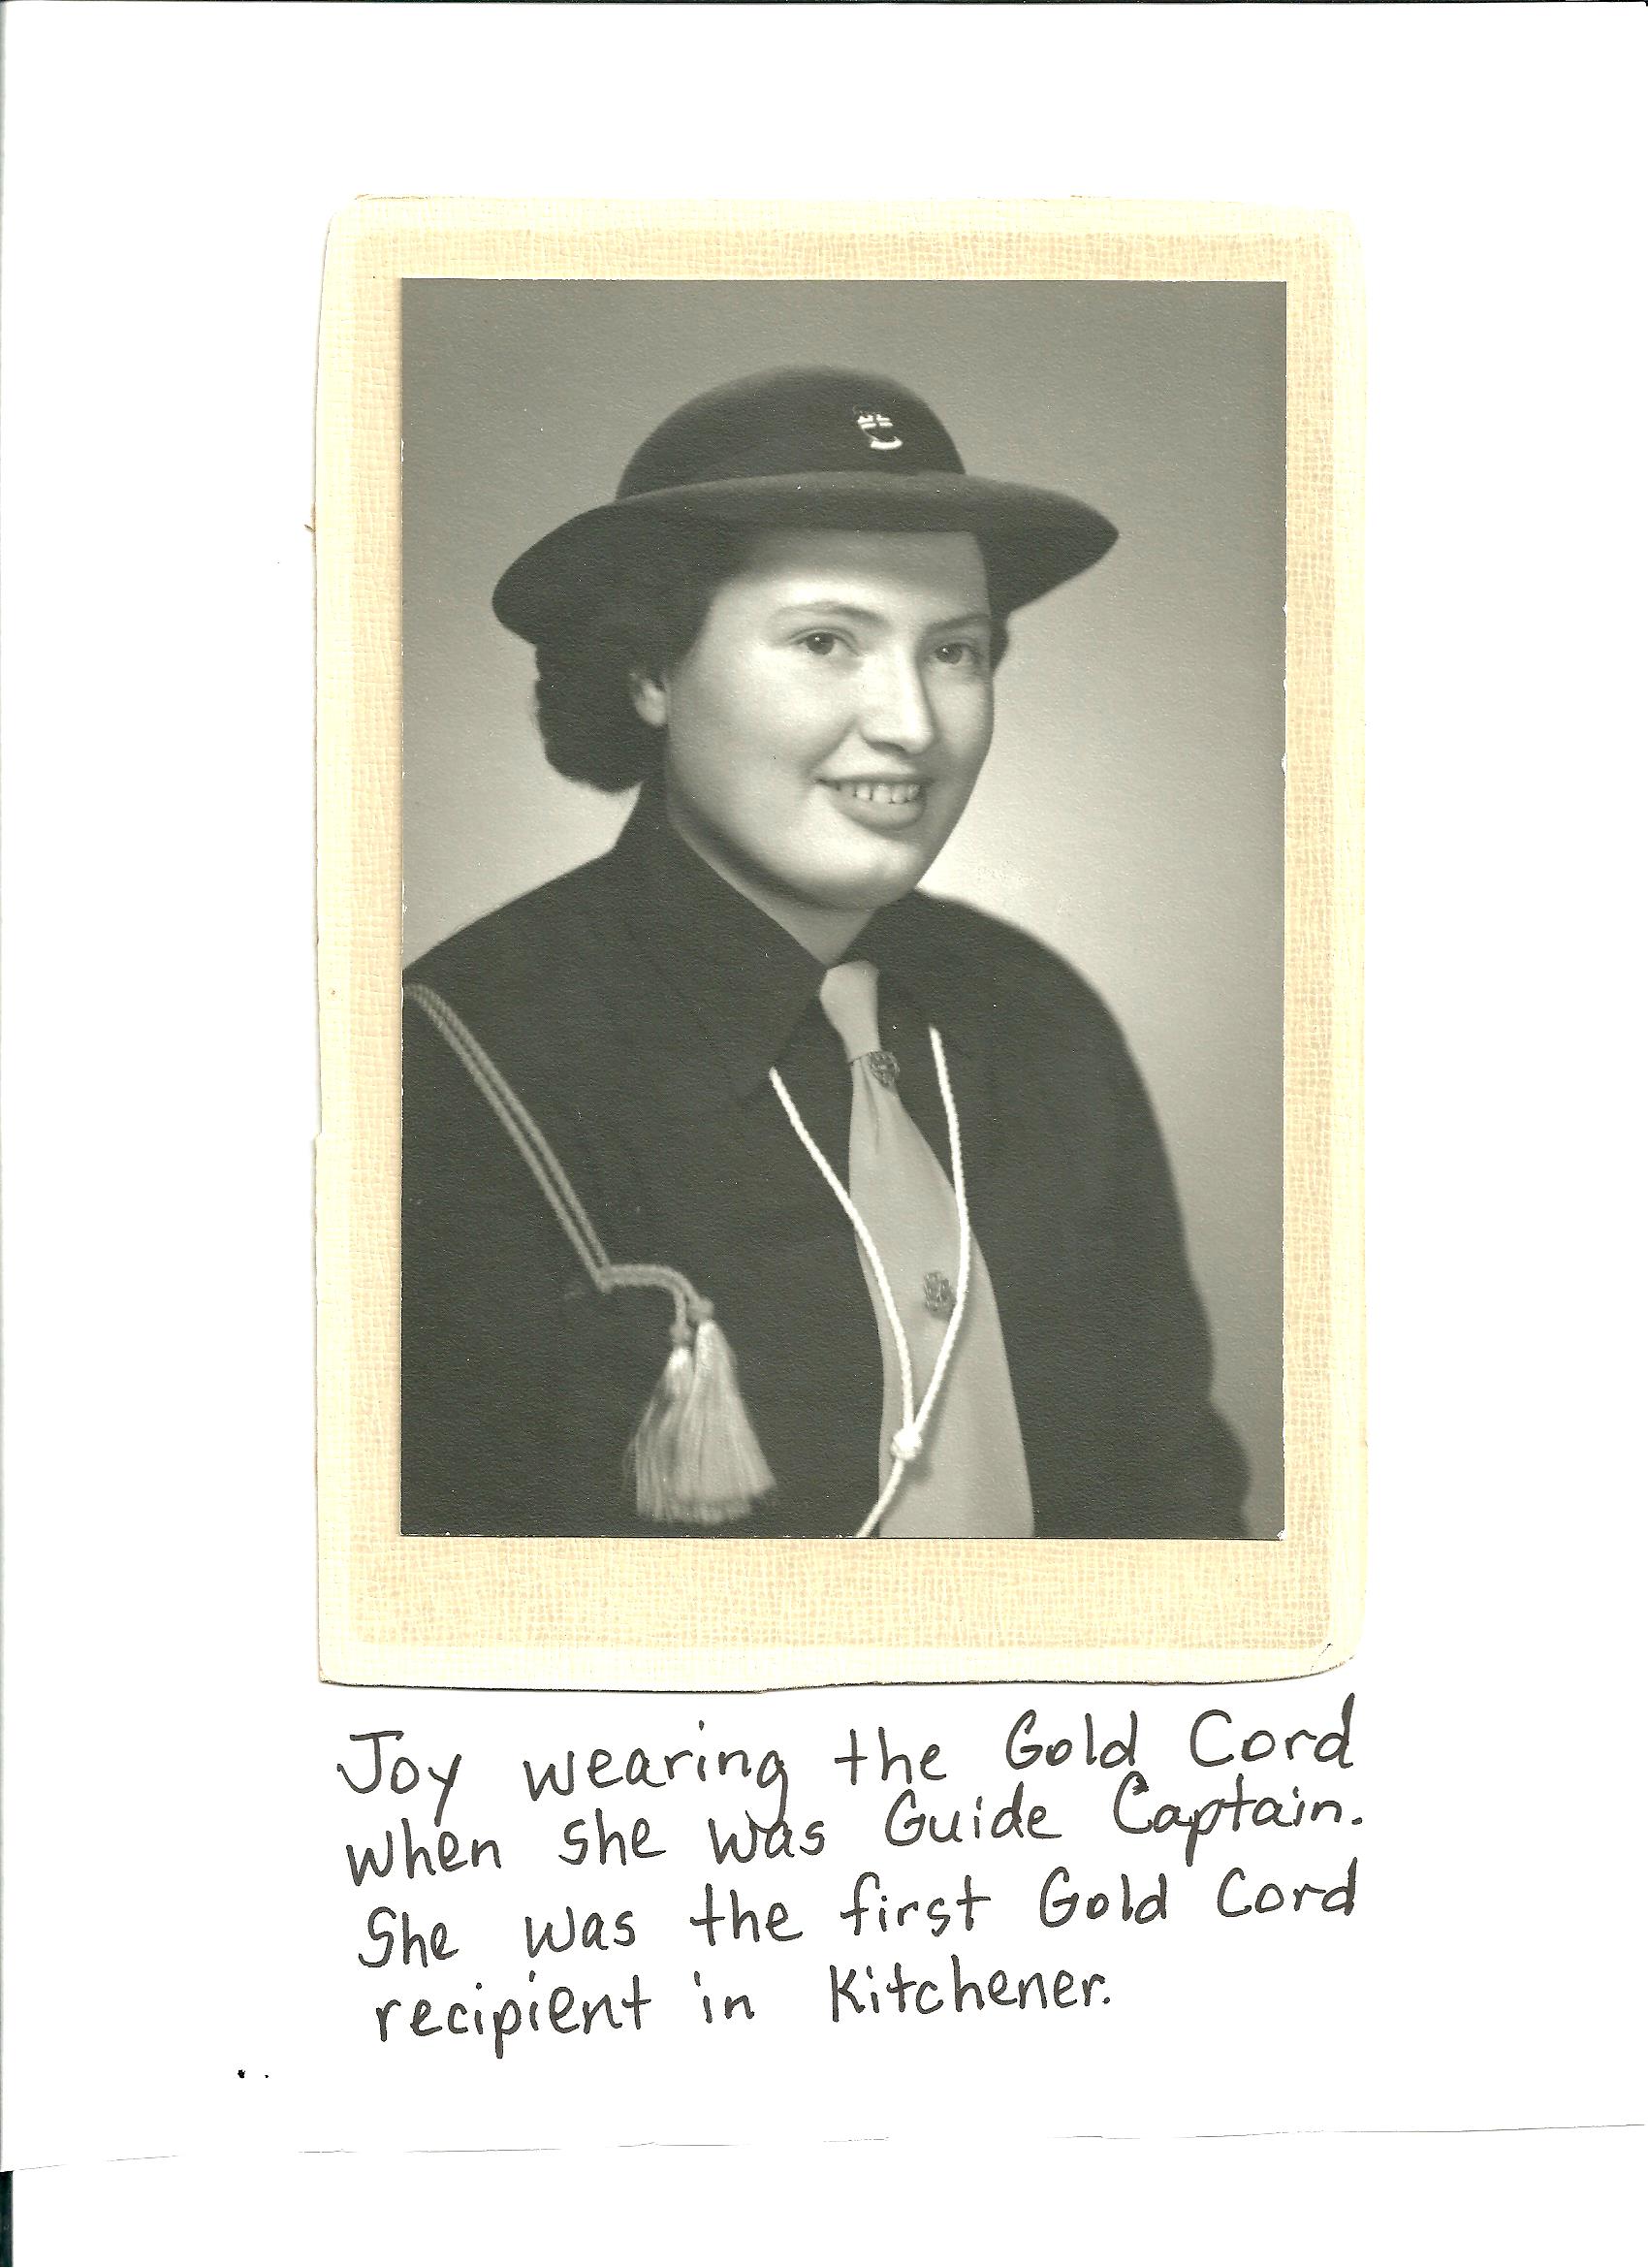 Joy wearing the Gold Cord
when she was Guide Captain.
She was the first Gold Cord
recipient in Kitchener.